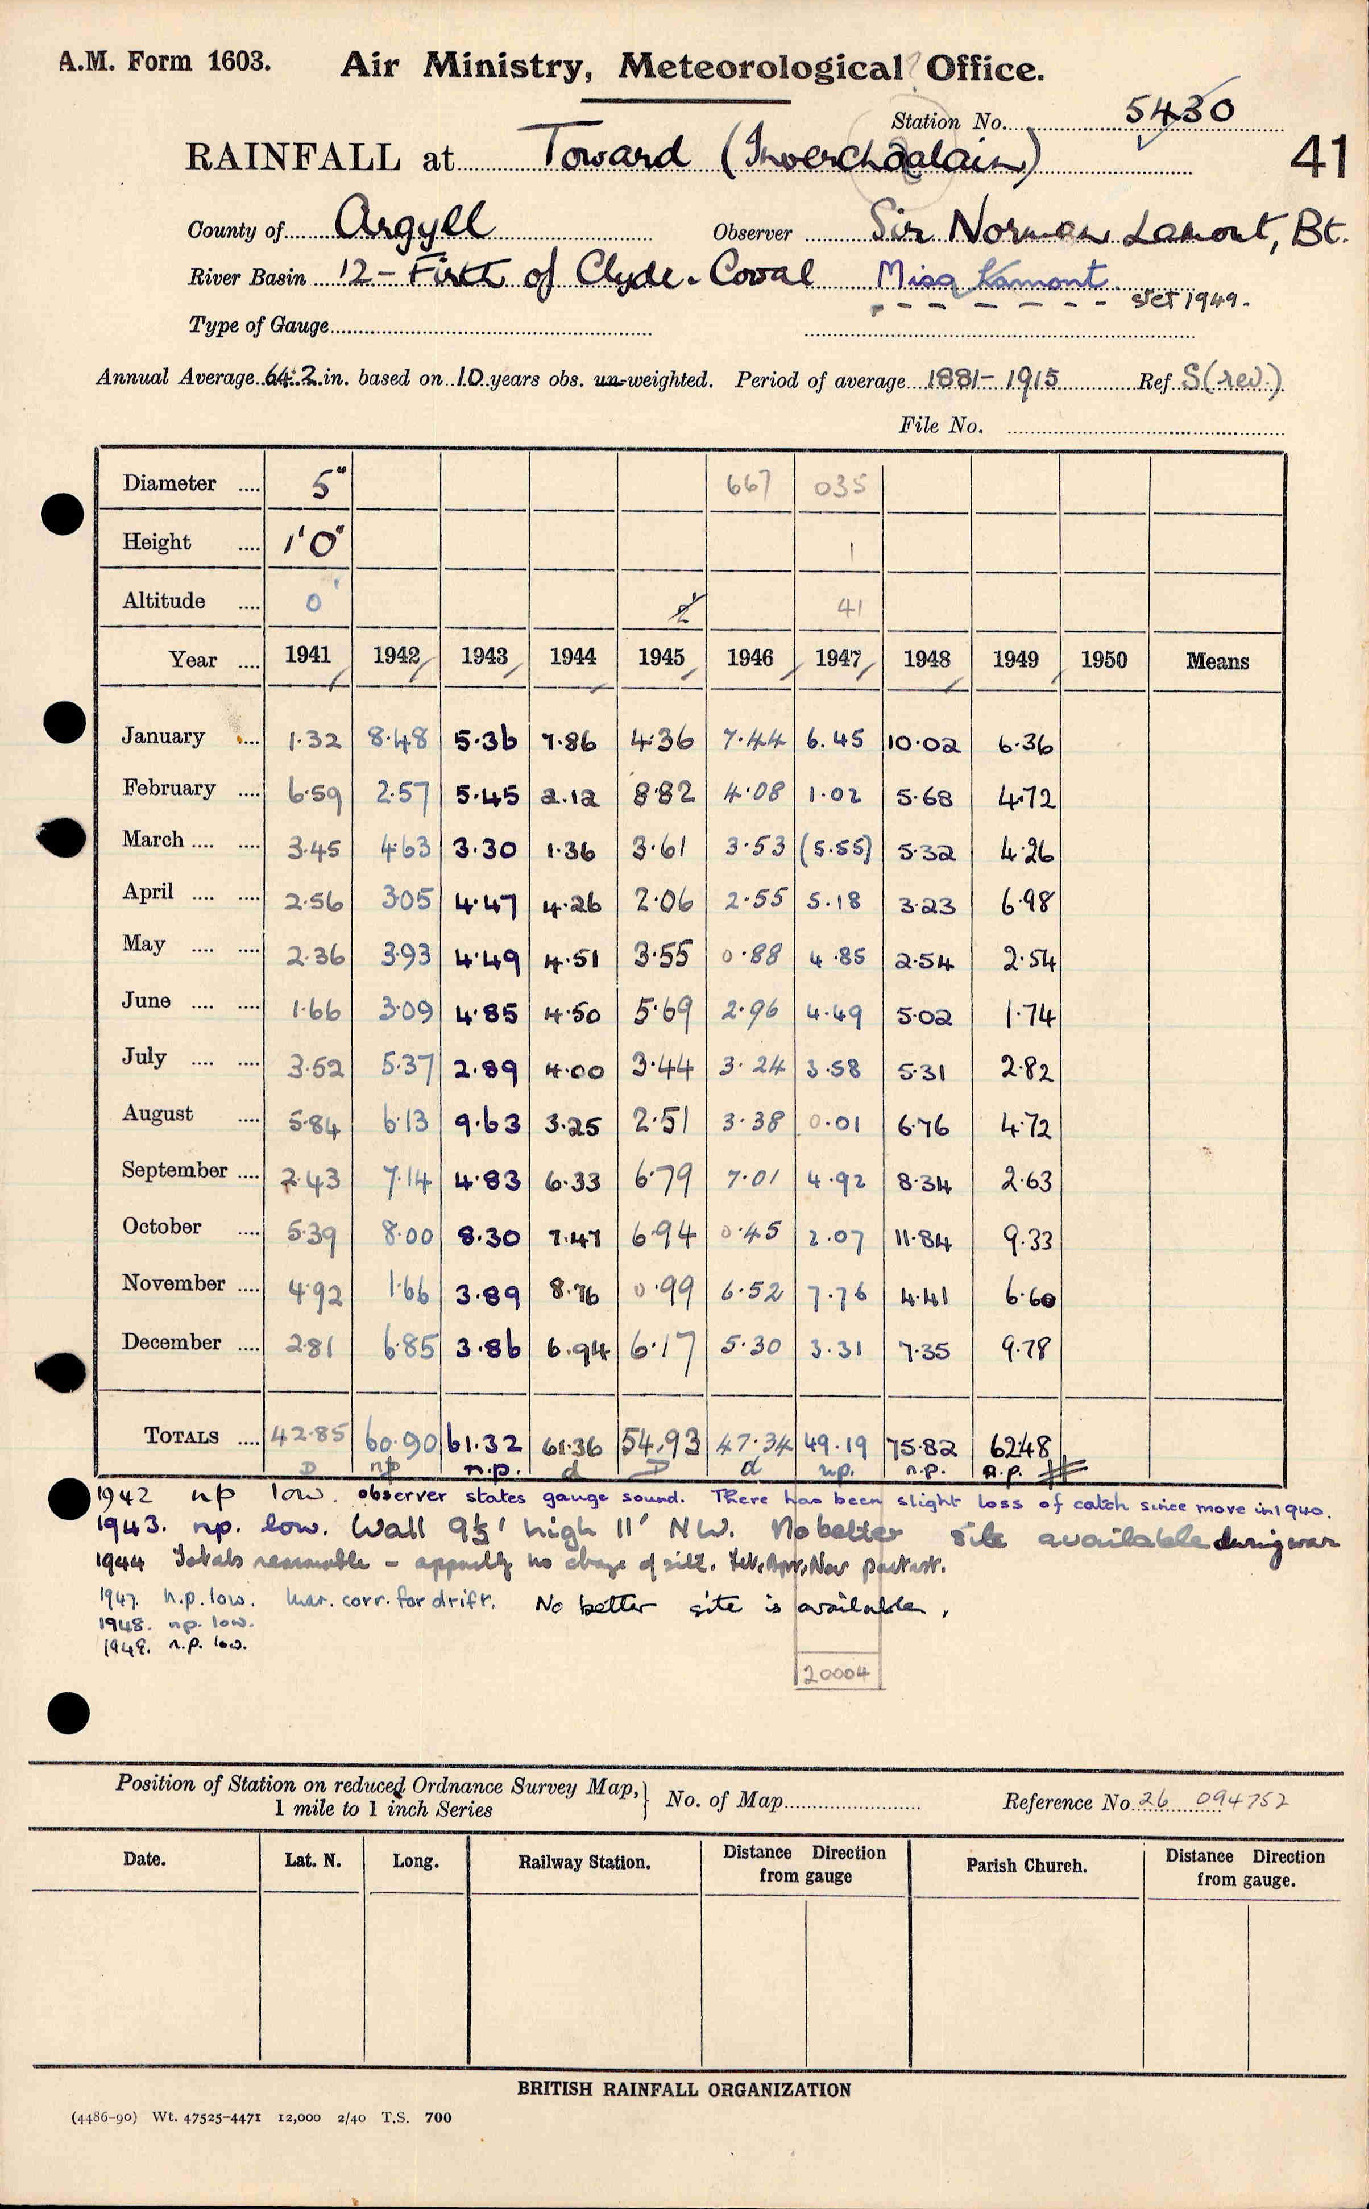 A.M. Form 1603. Air Ministry, Meteorological Office.
Station No. 5430
RAINFALL at Toward (Inverchaolain) 41
County of Argyll Observer Sir Norman Lamont, Bt.
River Basin 12 - Firth of Clyde. Cowal Miss Lamont
Oct 1949.
Type of Gauge
Annual Average 64.2 in. based on 10 years obs. un-weighted. Period of average 1881-1915 Ref. S(rev.)
File No.
Diameter .... 5" 667 035
Height .... 1'0" 1
Altitude .... 0' 41
Year .... 1941 1942 1943 1944 1945 1946 1947 1948 1949 1950 Means
January .... 1.32 8.48 5.36 7.86 4.36 7.44 6.45 10.02 6.36
February .... 6.59 2.57 5.45 2.12 8.82 4.08 1.02 5.68 4.72
March .... .... 3.45 4.63 3.30 1.36 3.61 3.53 (5.55) 5.32 4.26
April .... .... 2.56 3.05 4.47 4.26 2.06 2.55 5.18 3.23 6.98
May .... .... 2.36 3.93 4.49 4.51 3.55 0.88 4.85 2.54 2.54
June .... .... 1.66 3.09 4.85 4.50 5.69 2.96 4.49 5.02 1.74
July .... .... 3.52 5.37 2.89 4.00 3.44 3.24 3.58 5.31 2.82
August .... 5.84 6.13 9.63 3.25 2.51 3.38 0.01 6.76 4.72
September .... 2.43 7.14 4.83 6.33 6.79 7.01 4.92 8.34 2.63
October .... 5.39 8.00 8.30 7.47 6.94 0.45 2.07 11.84 9.33
November .... 4.92 1.66 3.89 8.76 0.99 6.52 7.76 4.41 6.60
December .... 2.81 6.85 3.86 6.94 6.17 5.30 3.31 7.35 9.78
TOTALS .... 42.85 60.90 61.32 61.36 54.93 47.34 49.19 75.82 62.48
D np n.p. d D d n.p. n.p. n.p.
1942 np low. observer states gauge sound. There has been slight loss of catch since move in 1940.
1943. np. low. Wall 9½' high 11' NW. No better site available during war
1944 Totals reasonable - apprtly no change of site. Feb, Apr, Nov
1947. n.p. low. Mar. corr. for drift. No better site is available.
1948. np. low.
1949. n.p. low.
20004
Position of Station on reduced Ordnance Survey Map, No. of Map Reference No. 26 094752
1 mile to 1 inch Series
Date. Lat. N. Long. Railway Station. Distance from gauge Direction Parish Church. Distance Direction from gauge.
BRITISH RAINFALL ORGANIZATION
(4486-90) Wt. 47525-4471 12,000 2/40 T.S. 700